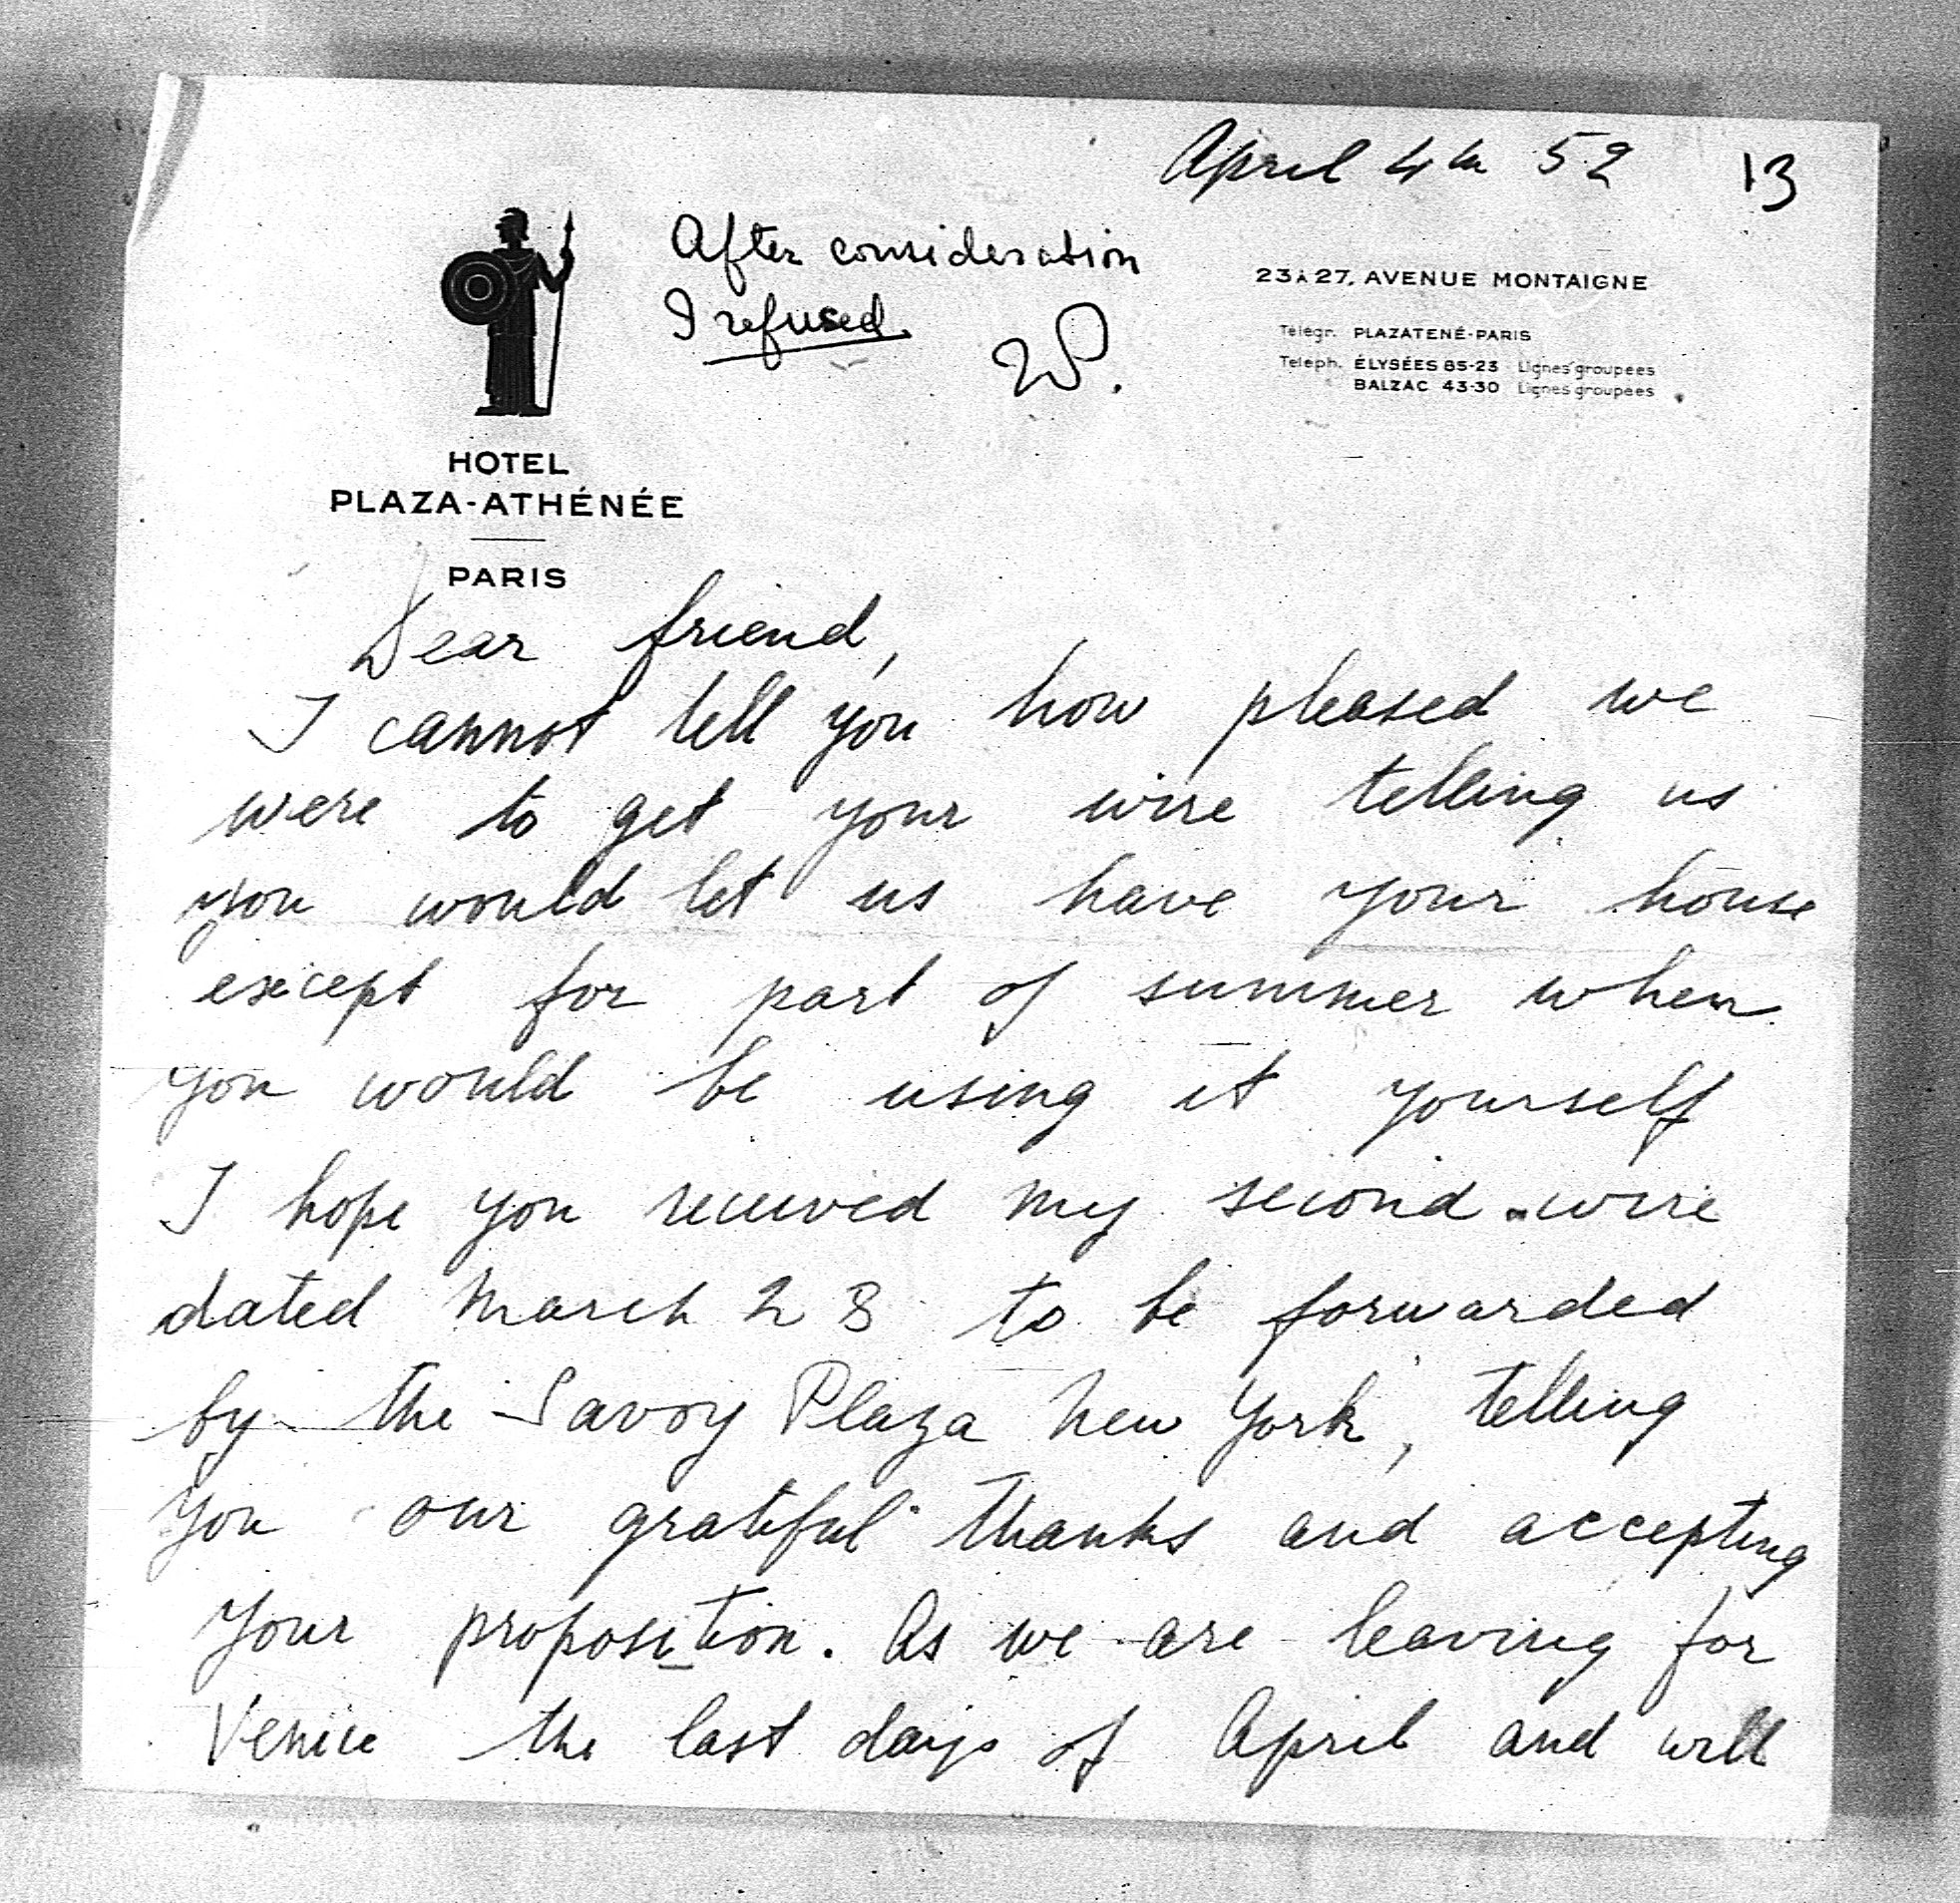 April 4th 52 13
After consideration
I refused
W.
23 à 27, AVENUE MONTAIGNE
Télégr. PLAZATENÉ-PARIS
Téléph. ÉLYSÉES 85-23 Lignes groupées
BALZAC 43-30 Lignes groupées
HOTEL
PLAZA-ATHÉNÉE
PARIS
Dear friend,
I cannot tell you how pleased we
were to get your wire telling us
you would let us have your house
except for part of summer when
you would be using it yourself
I hope you received my second wire
dated March 28 to be forwarded
by the Savoy Plaza New York, telling
you our grateful thanks and accepting
your proposition. As we are leaving for
Venice the last days of April and will